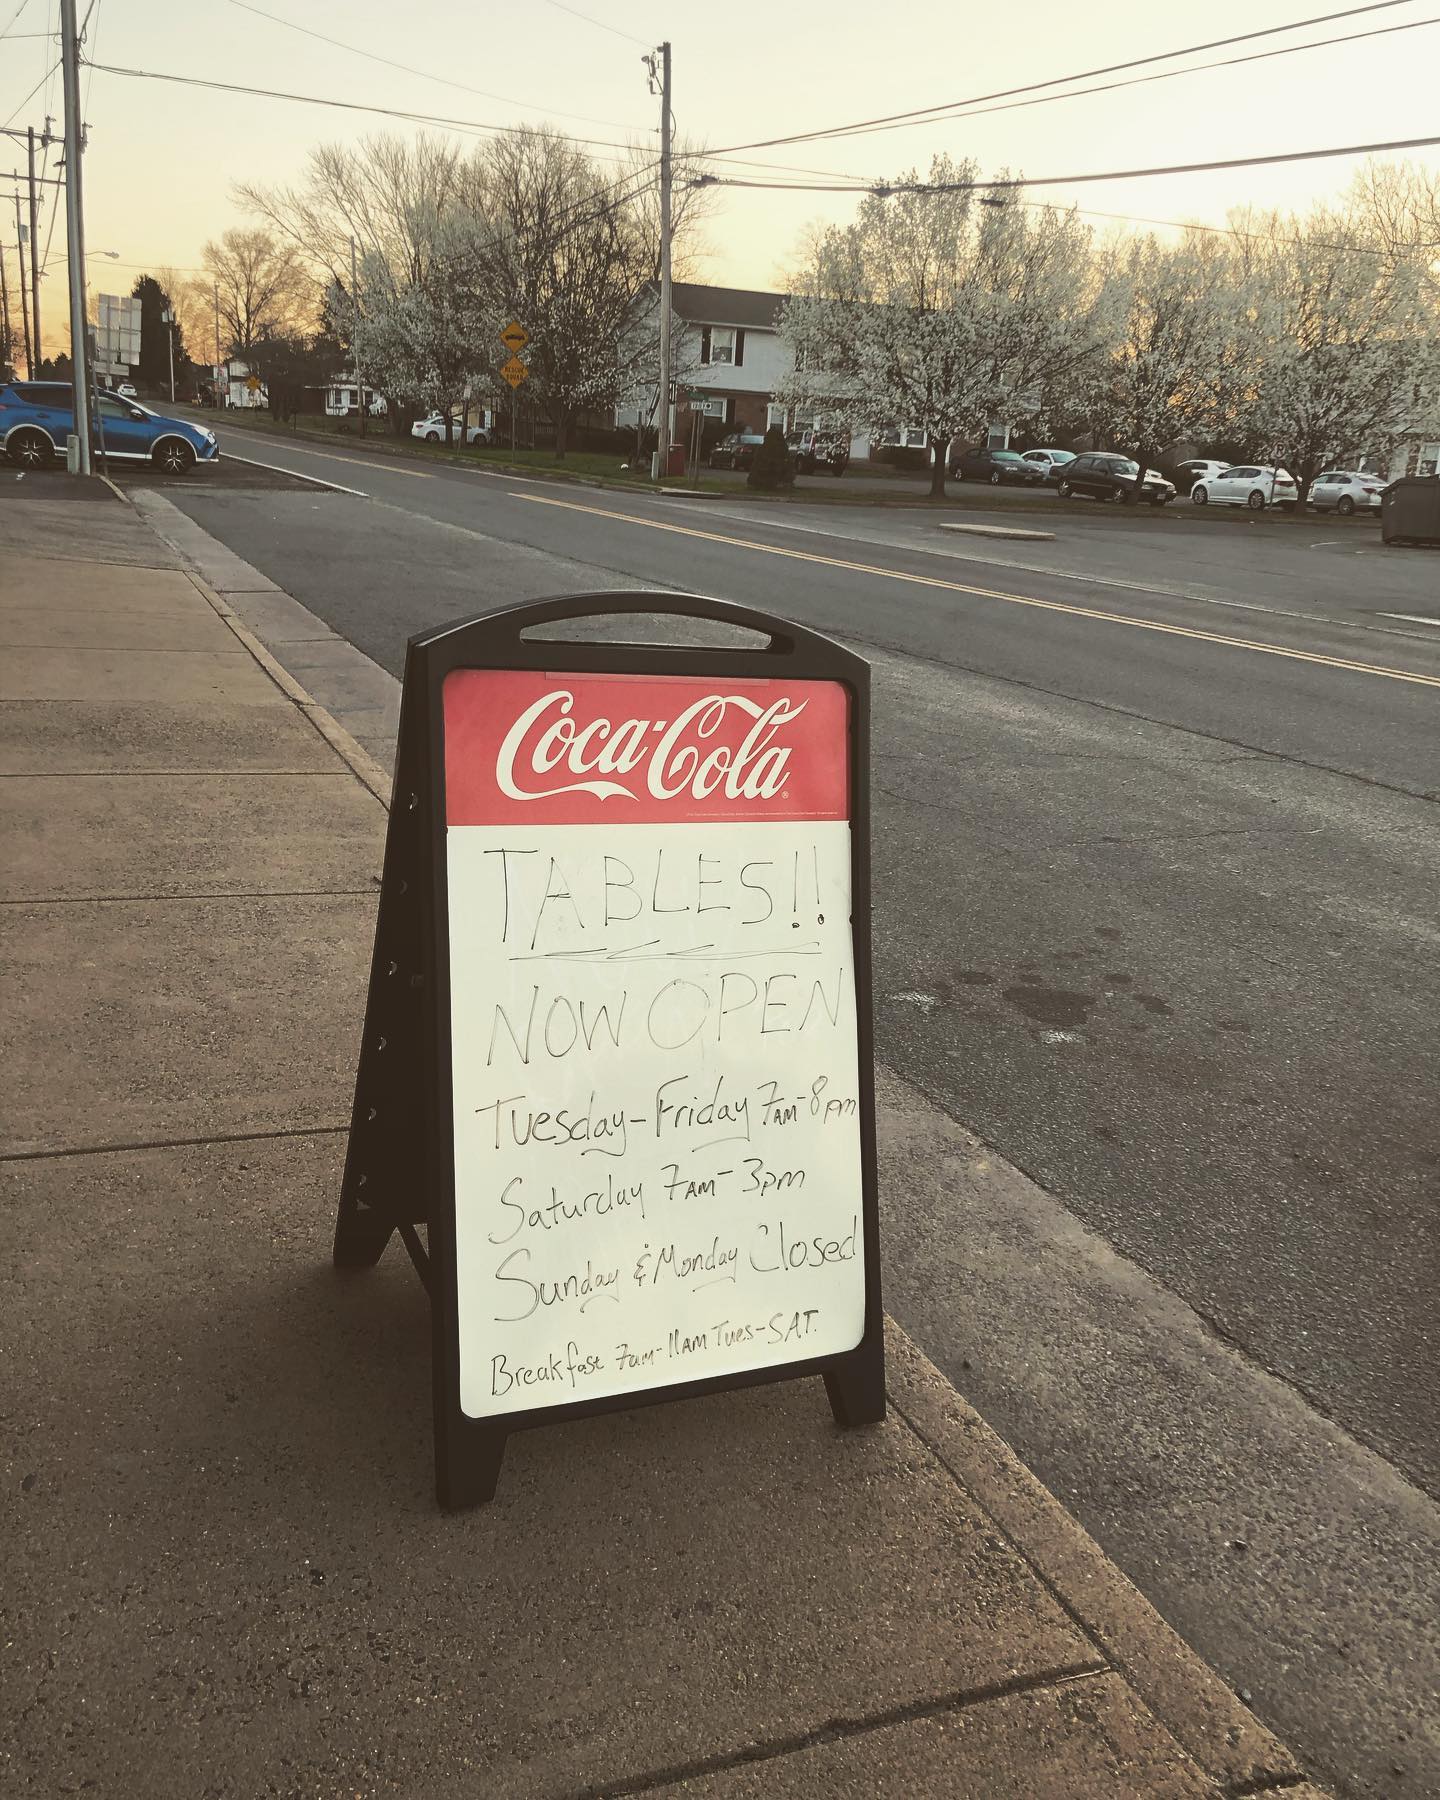 RESCUE
SQUAD
Coca-Cola
TABLES!!
NOW OPEN
Tuesday-Friday 7AM-8pm
Saturday 7AM-3pm
Sunday & Monday Closed
Breakfast 7am-11AM Tues-SAT.